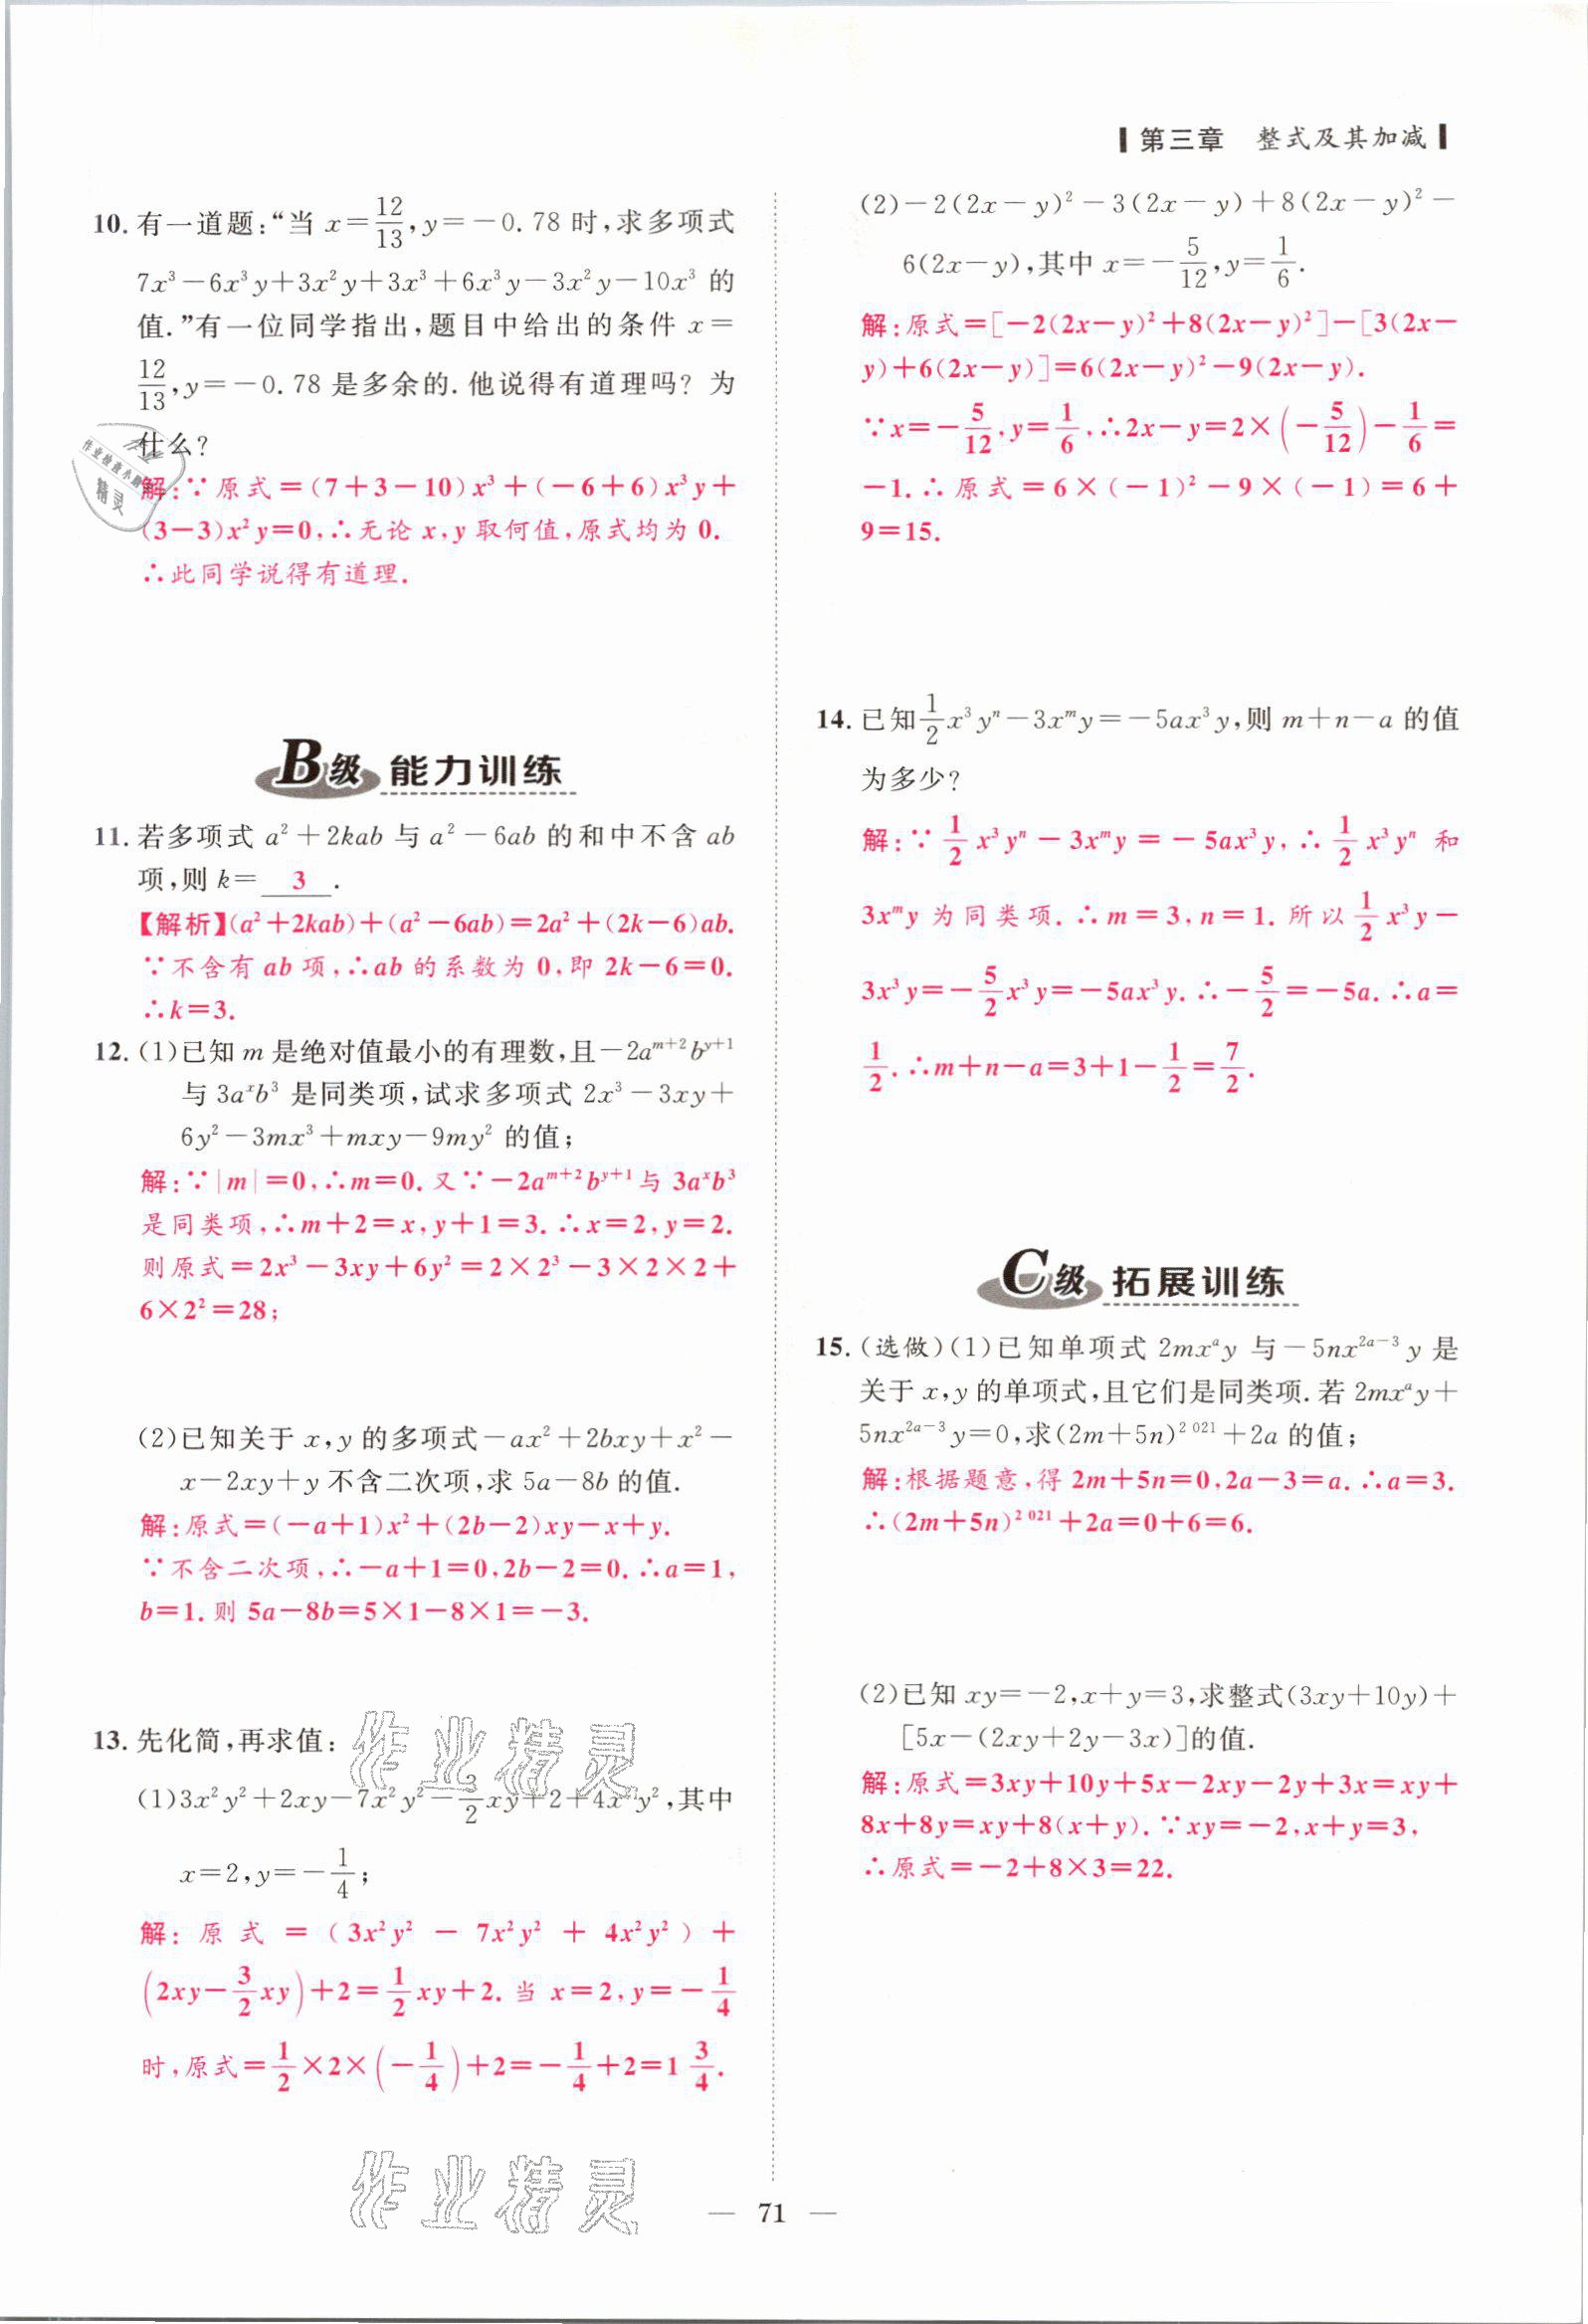 第三章 整式及其加减
10. 有一道题:“当 x=12/13,y=-0.78时,求多项式
7x³-6x³y+3x²y+3x³+6x³y-3x²y-10x³ 的
值.”有一位同学指出,题目中给出的条件 x=
12/13,y=-0.78是多余的.他说得有道理吗? 为
什么?
解:∵原式=(7+3-10)x³+(-6+6)x³y+
(3-3)x²y=0,∴无论 x,y 取何值,原式均为 0.
∴此同学说得有道理.
B级 能力训练
11. 若多项式 a²+2kab 与 a²-6ab 的和中不含 ab
项,则 k= 3 .
【解析】(a²+2kab)+(a²-6ab)=2a²+(2k-6)ab.
∵不含有 ab 项,∴ab 的系数为 0,即 2k-6=0.
∴k=3.
12. (1)已知 m 是绝对值最小的有理数,且-2a^{m+2}b^{y+1}
与 3a^{x}b³ 是同类项,试求多项式 2x³-3xy+
6y²-3mx³+mxy-9my² 的值;
解:∵|m|=0,∴m=0.又∵-2a^{m+2}b^{y+1}与 3a^{x}b³
是同类项,∴m+2=x,y+1=3.∴x=2,y=2.
则原式=2x³-3xy+6y²=2×2³-3×2×2+
6×2²=28;
(2)已知关于 x,y 的多项式-ax²+2bxy+x²-
x-2xy+y 不含二次项,求 5a-8b 的值.
解:原式=(-a+1)x²+(2b-2)xy-x+y.
∵不含二次项,∴-a+1=0,2b-2=0.∴a=1,
b=1.则 5a-8b=5×1-8×1=-3.
13. 先化简,再求值:
(1)3x²y²+2xy-7x²y²-3/2xy+2+4x²y²,其中
x=2,y=-1/4;
解:原式=(3x²y²-7x²y²+4x²y²)+
(2xy-3/2xy)+2=1/2xy+2.当 x=2,y=-1/4
时,原式=1/2×2×(-1/4)+2=-1/4+2=1 3/4.
(2)-2(2x-y)²-3(2x-y)+8(2x-y)²-
6(2x-y),其中 x=-5/12,y=1/6.
解:原式=[-2(2x-y)²+8(2x-y)²]-[3(2x-
y)+6(2x-y)]=6(2x-y)²-9(2x-y).
∵x=-5/12,y=1/6,∴2x-y=2×(-5/12)-1/6=
-1.∴原式=6×(-1)²-9×(-1)=6+
9=15.
14. 已知1/2x³yⁿ-3x^{m}y=-5ax³y,则 m+n-a 的值
为多少?
解:∵1/2x³yⁿ-3x^{m}y=-5ax³y,∴1/2x³yⁿ 和
3x^{m}y 为同类项.∴m=3,n=1.所以1/2x³y-
3x³y=-5/2x³y=-5ax³y.∴-5/2=-5a.∴a=
1/2.∴m+n-a=3+1-1/2=7/2.
C级 拓展训练
15. (选做)(1)已知单项式 2mx^{a}y 与-5nx^{2a-3}y 是
关于 x,y 的单项式,且它们是同类项.若 2mx^{a}y+
5nx^{2a-3}y=0,求(2m+5n)^{2 021}+2a 的值;
解:根据题意,得 2m+5n=0,2a-3=a.∴a=3.
∴(2m+5n)^{2 021}+2a=0+6=6.
(2)已知 xy=-2,x+y=3,求整式(3xy+10y)+
[5x-(2xy+2y-3x)]的值.
解:原式=3xy+10y+5x-2xy-2y+3x=xy+
8x+8y=xy+8(x+y).∵xy=-2,x+y=3,
∴原式=-2+8×3=22.
— 71 —
作业精灵
作业精灵
作业
作业检查小助手
精灵